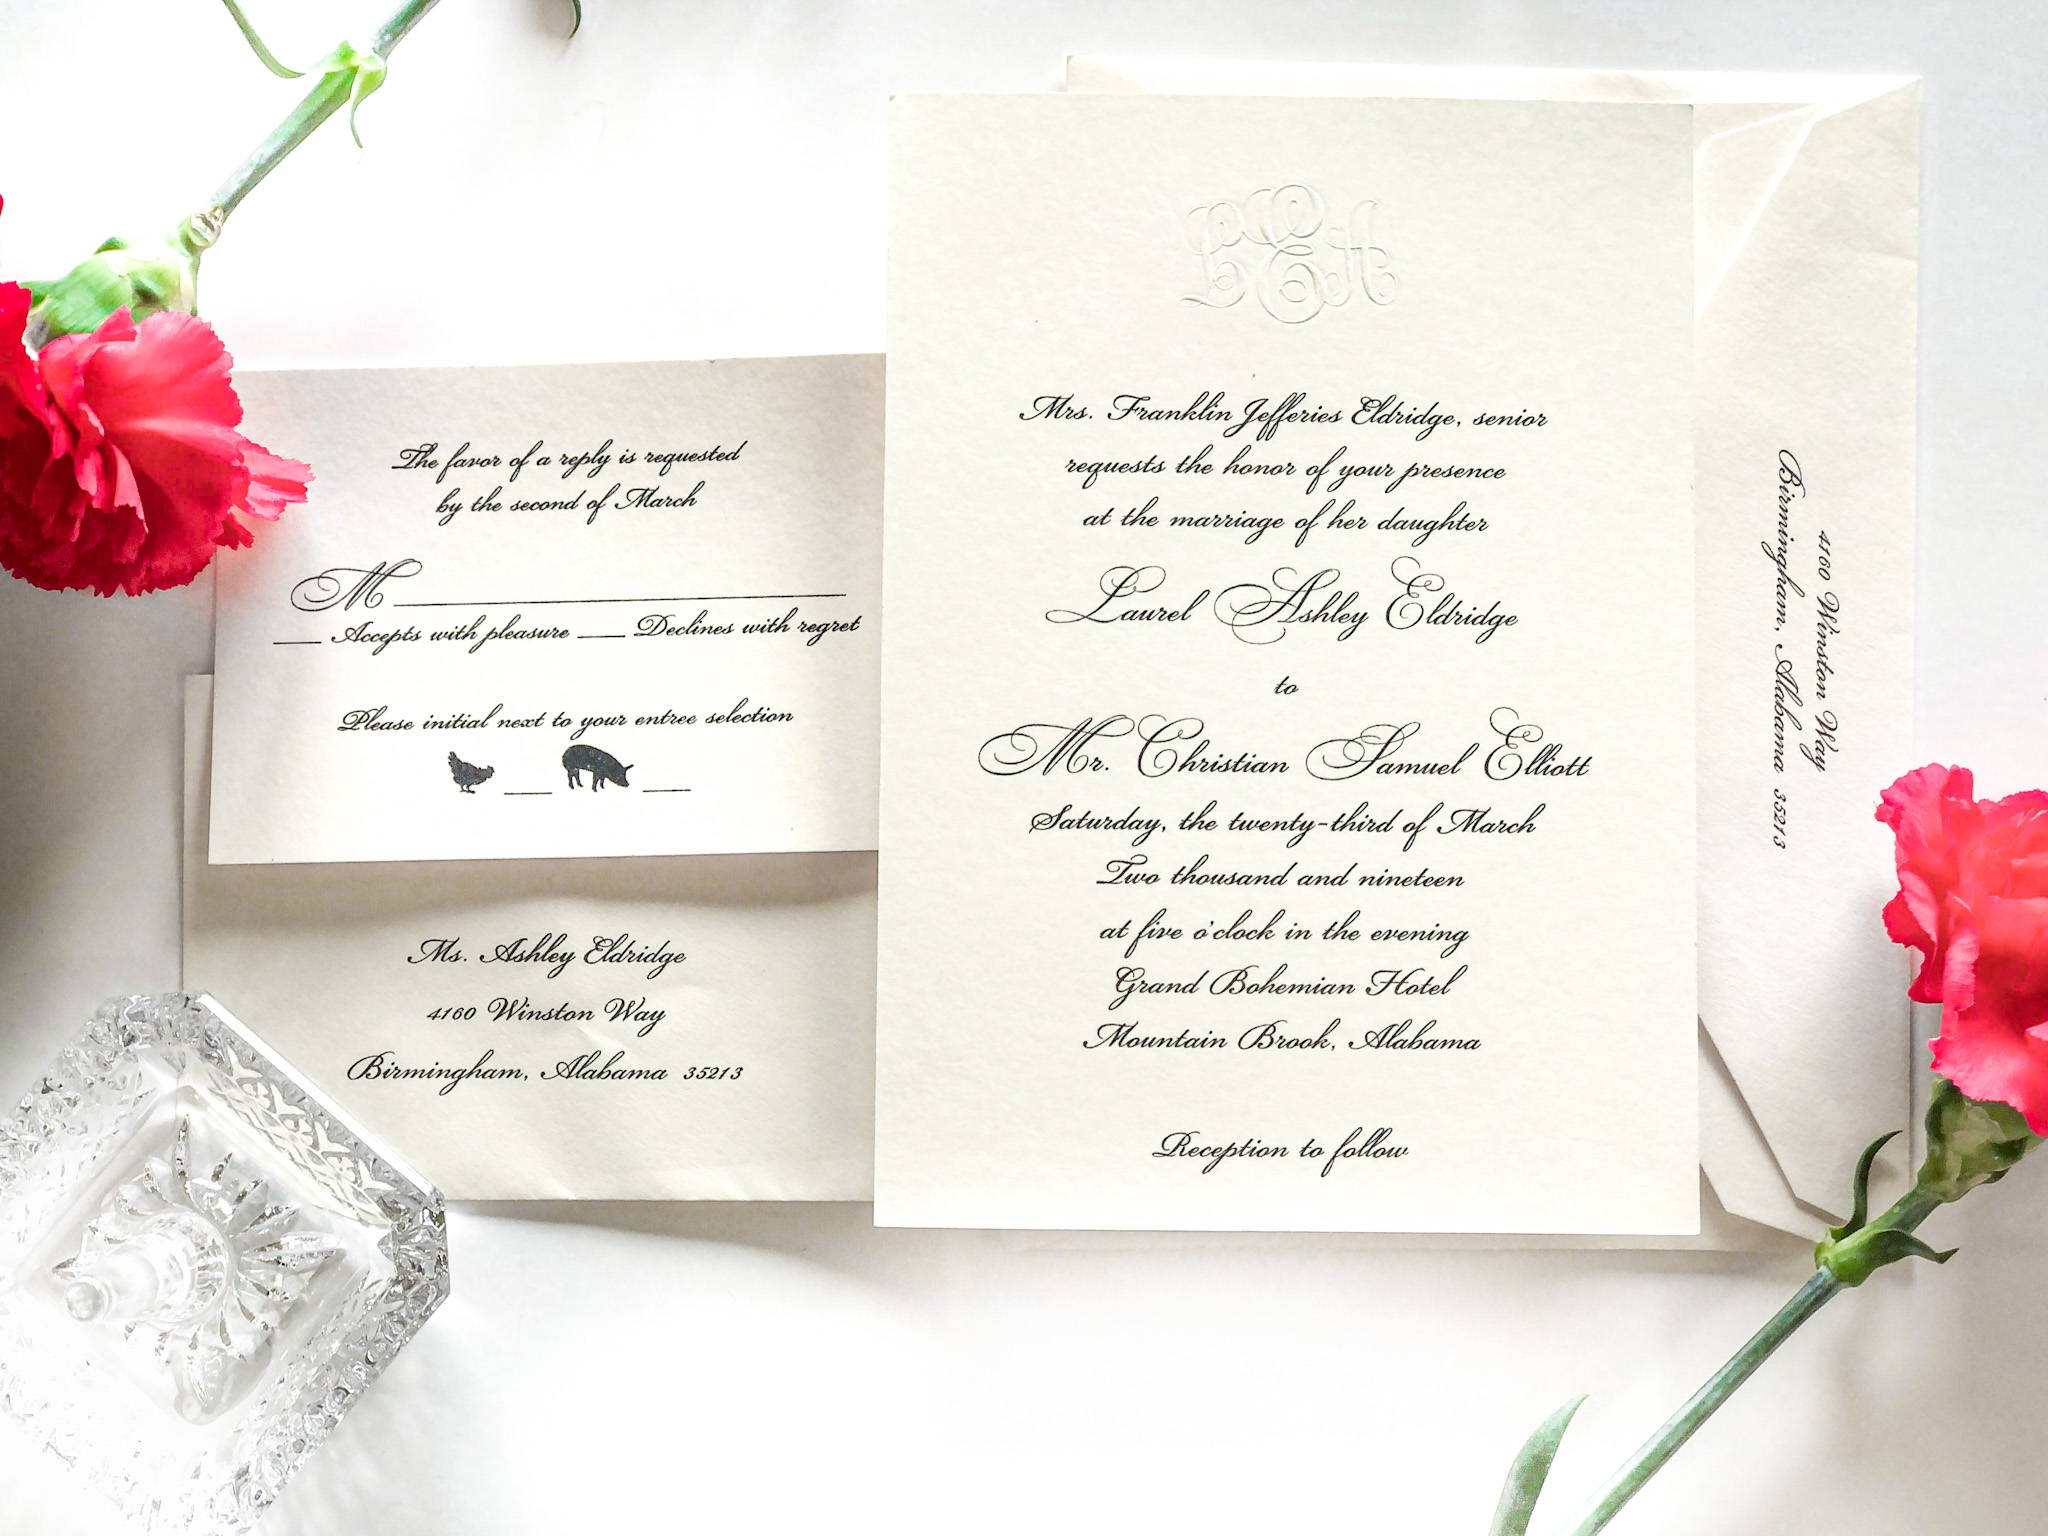 The favor of a reply is requested
by the second of March
M
Accepts with pleasure Declines with regret
Please initial next to your entree selection
Ms. Ashley Eldridge
4160 Winston Way
Birmingham, Alabama 35213
LEA
Mrs. Franklin Jefferies Eldridge, senior
requests the honor of your presence
at the marriage of her daughter
Laurel Ashley Eldridge
to
Mr. Christian Samuel Elliott
Saturday, the twenty-third of March
Two thousand and nineteen
at five o'clock in the evening
Grand Bohemian Hotel
Mountain Brook, Alabama
Reception to follow
4160 Winston Way
Birmingham, Alabama 35213